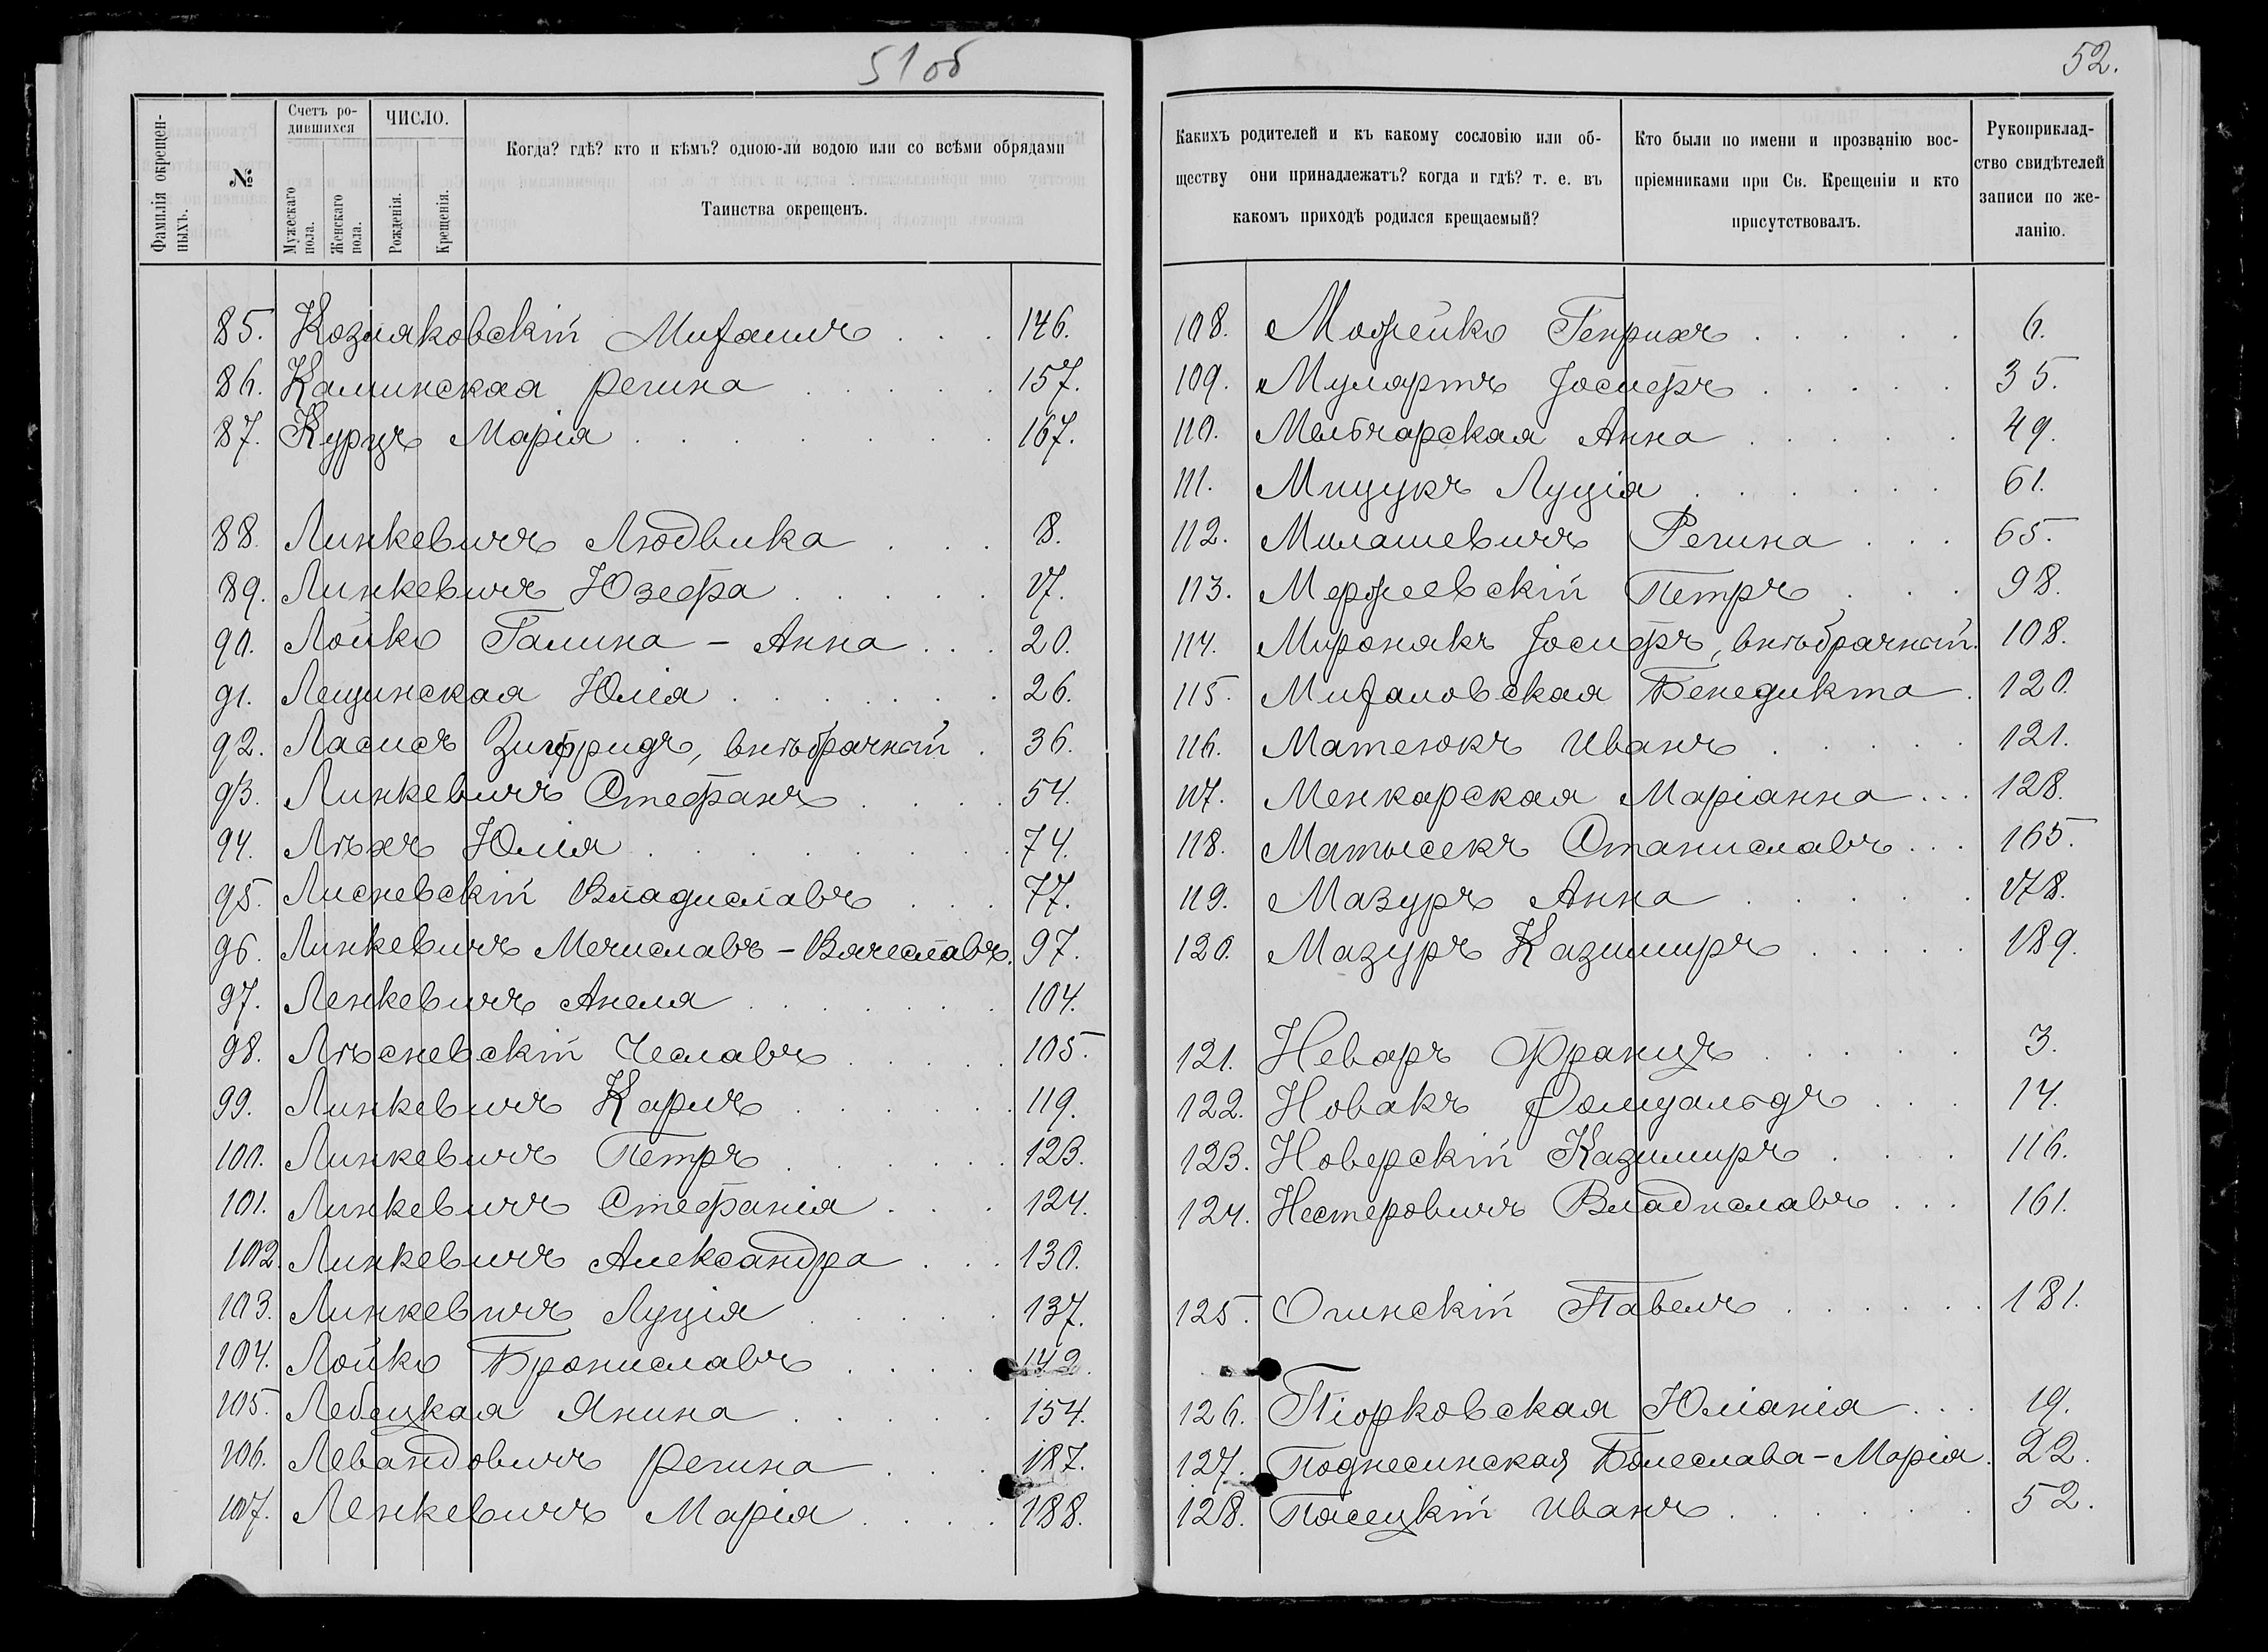 51 об
Фамилія окрещен-
ныхъ.
№
Счетъ ро-
дившихся
Мужескаго
пола.
Женскаго
пола.
ЧИСЛО.
Рожденія.
Крещенія.
Когда? гдѣ? кто и кѣмъ? одною-ли водою или со всѣми обрядами
Таинства окрещенъ.
85. Козляковскій Михаилъ . . . 146.
86. Каминская Регина . . . . . 157.
87. Курцъ Марія . . . . . . . . 167.
88. Линкевичъ Людвика . . . 8.
89. Линкевичъ Юзефа . . . . . 17.
90. Лойко Галина - Анна . . . 20.
91. Лещинская Юлія . . . . . . 26.
92. Ласисъ Зигфридъ, внѣбрачный . 36.
93. Линкевичъ Стефанъ . . . . 54.
94. Лѣхъ Юлія . . . . . . . . 74.
95. Лисневскій Владиславъ . . . 77.
96. Линкевичъ Мечиславъ - Вячеславъ. 97.
97. Ленкевичъ Анеля . . . . . . 104.
98. Лѣсневскій Чеславъ . . . . . 105.
99. Линкевичъ Карлъ . . . . . . 119.
100. Линкевичъ Петръ . . . . . . 123.
101. Линкевичъ Стефанія . . . 124.
102. Линкевичъ Александра . . . 130.
103. Линкевичъ Луція . . . . . 137.
104. Лойко Брониславъ . . . . 142.
105. Лебецкая Янина . . . . . 154.
106. Левандовичъ Регина . . . 187.
107. Ленкевичъ Марія . . . . 188.
52.
Какихъ родителей и къ какому сословію или об-
ществу они принадлежатъ? когда и гдѣ? т. е. въ
какомъ приходѣ родился крещаемый?
Кто были по имени и прозванію вос-
пріемниками при Св. Крещеніи и кто
присутствовалъ.
Рукоприклад-
ство свидѣтелей
записи по же-
ланію.
108. Можейко Генрихъ . . . . . 6.
109. Мулартъ Іосифъ . . . . . 35.
110. Мельчарская Анна . . . . . 49.
111. Мицукъ Луція . . . . . . 61.
112. Милашевичъ Регина . . . 65.
113. Мержеевскій Петръ . . . 98.
114. Миронякъ Іосифъ, внѣбрачный. 108.
115. Михаловская Бенедикта . 120.
116. Матеюкъ Иванъ . . . . . 121.
117. Менкарская Маріанна . . . 128.
118. Матысекъ Станиславъ . . . 165.
119. Мазуръ Анна . . . . . 178.
120. Мазуръ Казимиръ . . . . . 189.
121. Неваръ Францъ . . . . . 3.
122. Новакъ Ромуальдъ . . . 14.
123. Новерскій Казимиръ . . . . 116.
124. Нестеровичъ Владиславъ . . . 161.
125. Огинскій Павелъ . . . . . . 181.
126. Піорковская Юліанія . . . 19.
127. Поднесинская Болеслава - Марія. 22.
128. Пясецкій Иванъ . . . . . . 52.